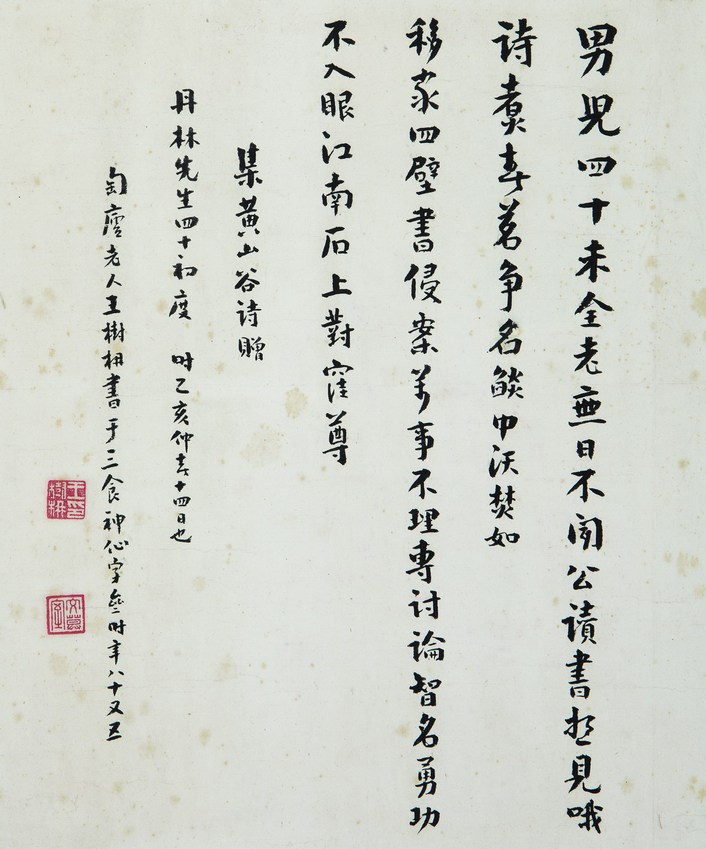 男兒四十未全老無日不聞公讀書想見哦
詩煑春茗爭名燄中沃焚如
移家四壁書侵案萬事不理專討論智名勇功
不入眼江南石上對窪尊
集黃山谷詩贈
丹林先生四十初度 時乙亥仲春十四日也
匋廬老人王樹枏書于三食神仙字盦時年八十又五
王樹枏印